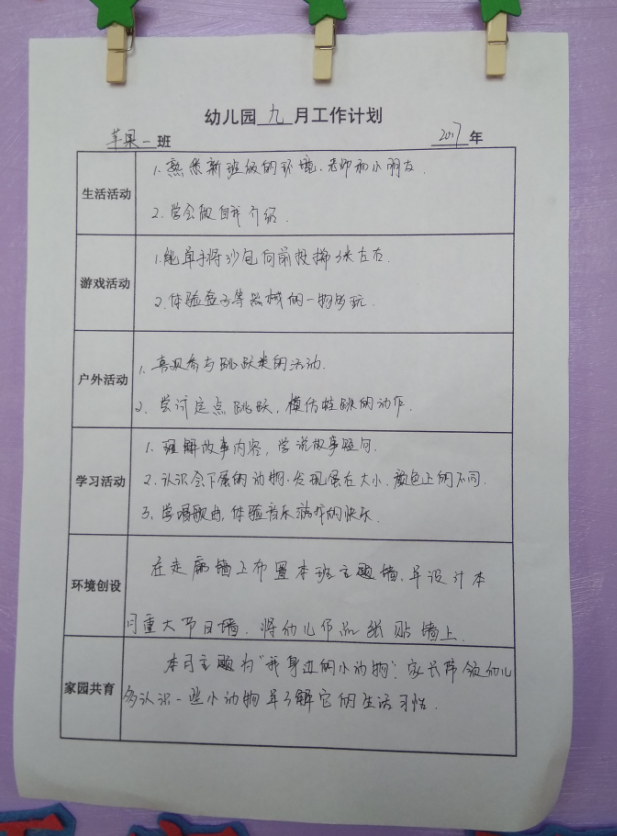 幼儿园 九 月工作计划
苹果一班 2017年
生活活动
1. 熟悉新班级的环境、老师和小朋友.
2. 学会做自我介绍.
游戏活动
1. 能单手将沙包向前投掷3米左右.
2. 体验盘子等器械的一物多玩.
户外活动
1. 喜欢参与跳跃类的活动.
2. 尝试定点跳跃, 模仿蛙跳的动作.
学习活动
1. 理解故事内容, 学说故事短句.
2. 认识会下蛋的动物. 发现蛋在大小、颜色上的不同.
3. 学唱歌曲, 体验音乐游戏的快乐.
环境创设
在走廊墙上布置本班主题墙, 并设计本
月重大节日墙. 将幼儿作品纸贴墙上.
家园共育
本月主题为“我身边的小动物”. 家长带领幼儿
多认识一些小动物并了解它的生活习惯.